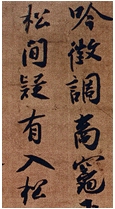 吟徵調商竈
松間疑有入松